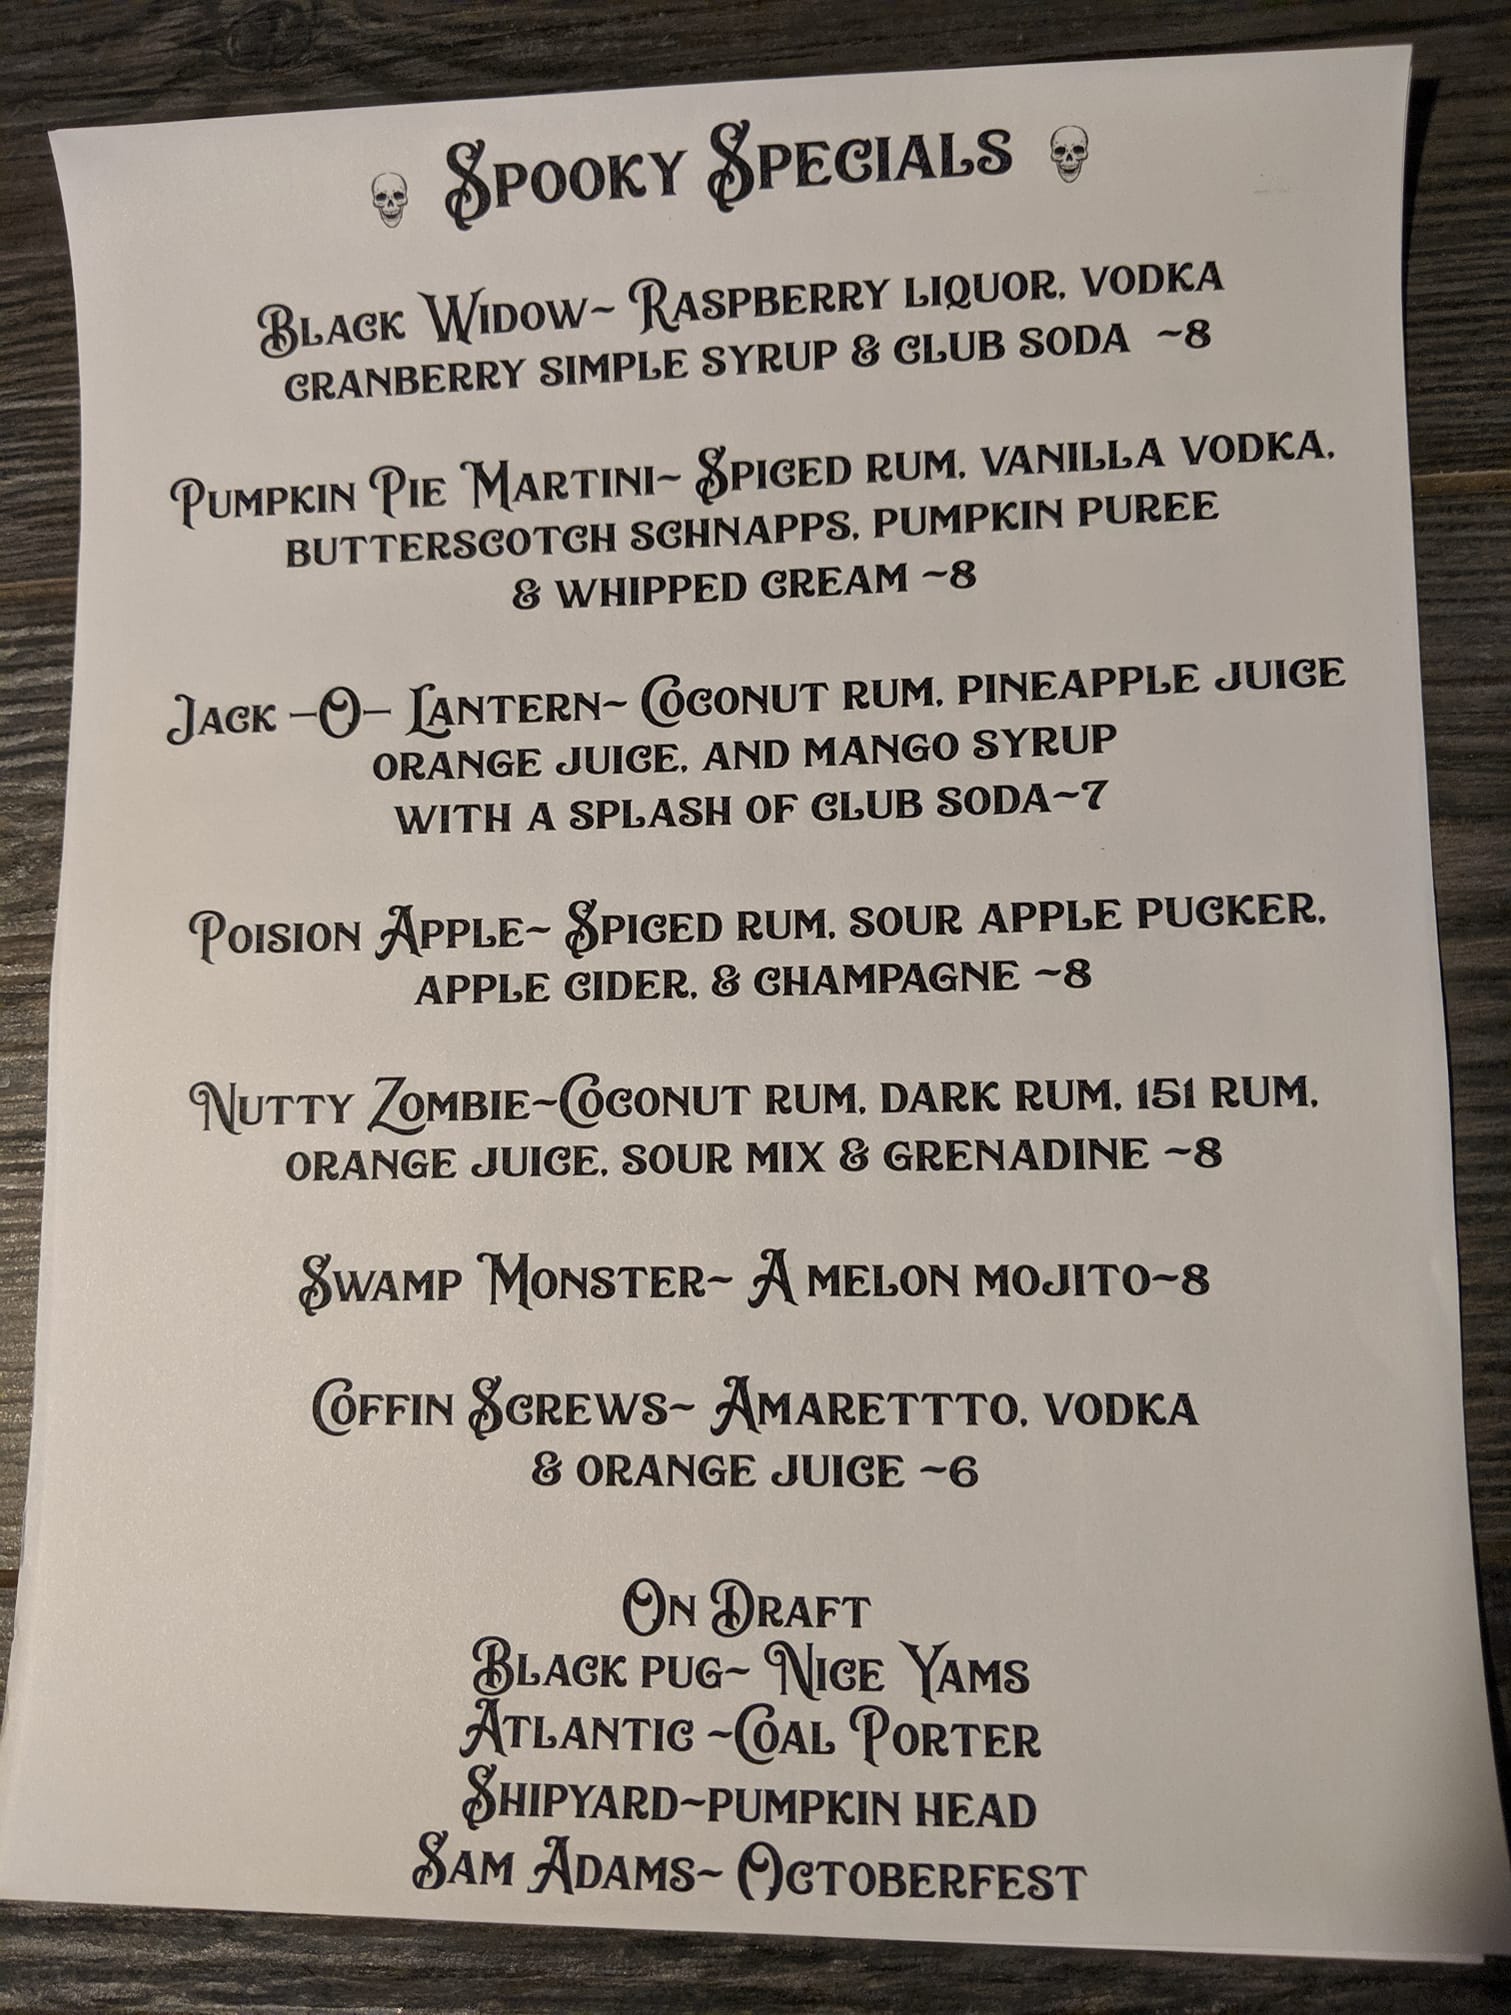 Spooky Specials
Black Widow~ Raspberry liquor, vodka
cranberry simple syrup & club soda ~8
Pumpkin Pie Martini~ Spiced rum, vanilla vodka,
butterscotch schnapps, pumpkin puree
& whipped cream ~8
Jack -O- Lantern~ Coconut rum, pineapple juice
orange juice, and mango syrup
with a splash of club soda~7
Poision Apple~ Spiced rum, sour apple pucker,
apple cider, & champagne ~8
Nutty Zombie~Coconut rum, dark rum, 151 rum,
orange juice, sour mix & grenadine ~8
Swamp Monster~ A melon mojito~8
Coffin Screws~ Amarettto, vodka
& orange juice ~6
On Draft
Black pug~ Nice Yams
Atlantic ~Coal Porter
Shipyard~pumpkin head
Sam Adams~ Octoberfest